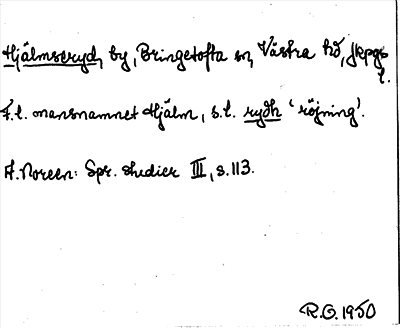 Hjälmseryd, by, Bringetofta sn, Västra hd, Jkpgs
l.
F.l. mansnamnet Hjälm, s.l. rydh 'röjning'.
A. Noreen: Spr. studier III, s. 113.
R.O. 1950